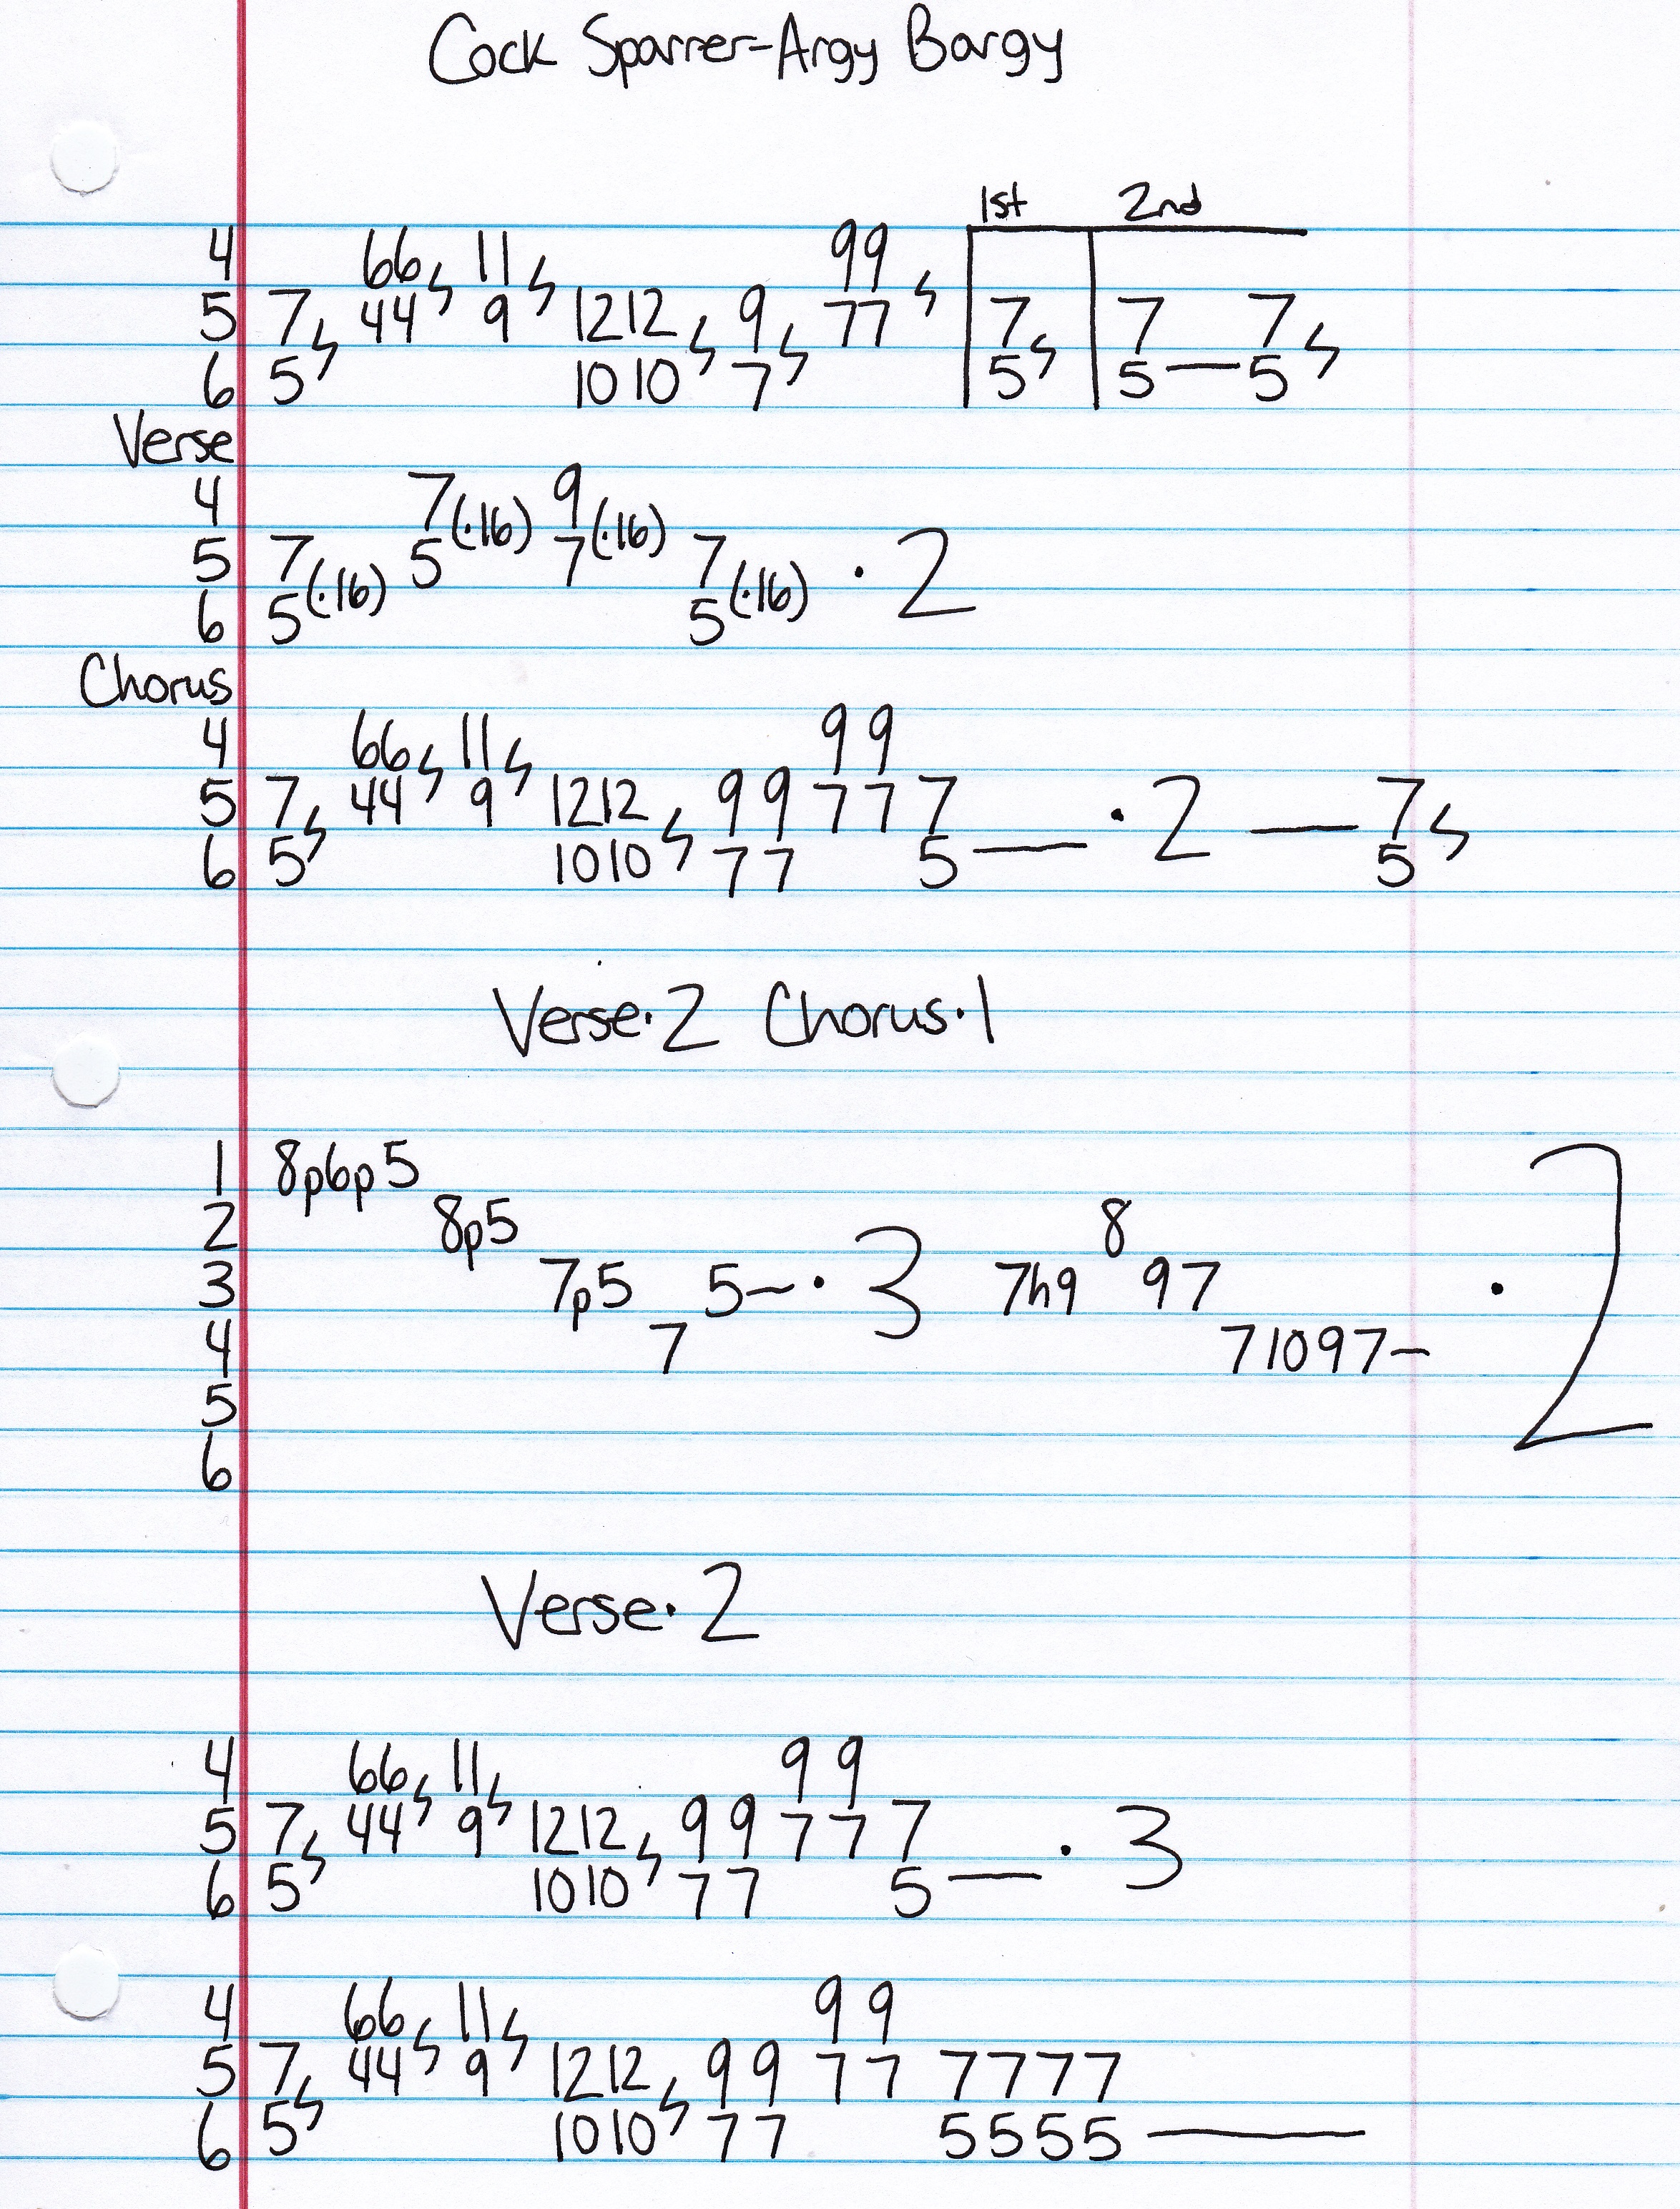 Cock Sparrer-Argy Bargy
1st 2nd
4 66 11 99
5 7 44 9 1212 9 77 7 7 7
6 5 1010 7 5 5—5
Verse
4 7(·16) 9(·16)
5 7(·16) 5 7 7(·16) ·2
6 5 5
Chorus
4 66 11 99
5 7 44 9 1212 99 77 7 ·2 — 7
6 5 1010 77 5— 5
Verse·2 Chorus·1
1 8p6p5
2 8p5 8
3 7p5 5—·3 7h9 97 ·2
4 7 71097—
5
6
Verse·2
4 66 11 99
5 7 44 9 1212 99 77 7 ·3
6 5 1010 77 5—
4 66 11 99
5 7 44 9 1212 99 77 7777
6 5 1010 77 5555—